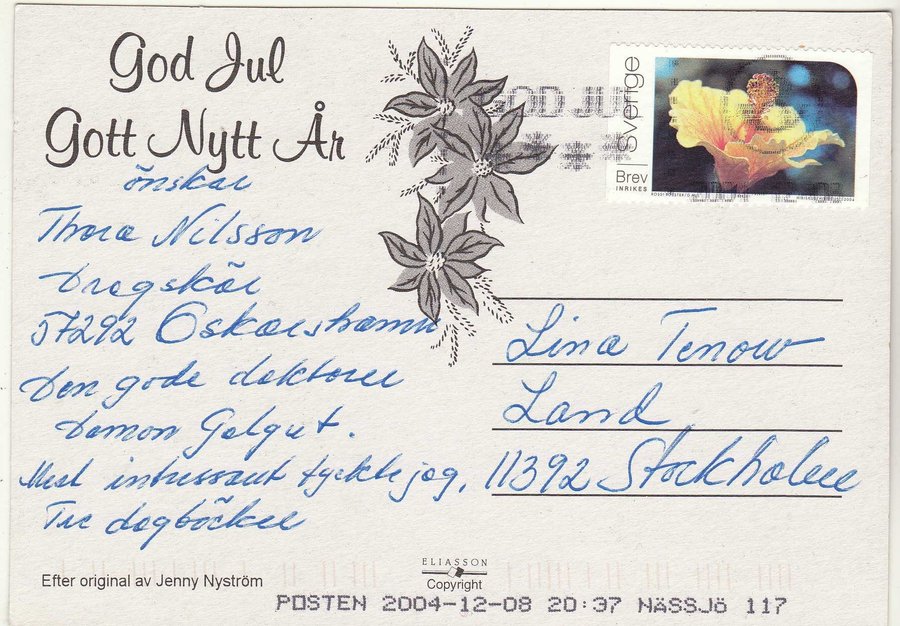 God Jul
Gott Nytt År
önskar
Thora Nilsson
Dragskär
57292 Oskarshamn
Den gode doktorn
Damon Galgut.
Mest intressant tyckte jag,
Tre dagböcker
Sverige
Brev
INRIKES
GOD JUL
Lina Tenow
Land
11392 Stockholm
Efter original av Jenny Nyström
ELIASSON
Copyright
POSTEN 2004-12-08 20:37 NÄSSJÖ 117